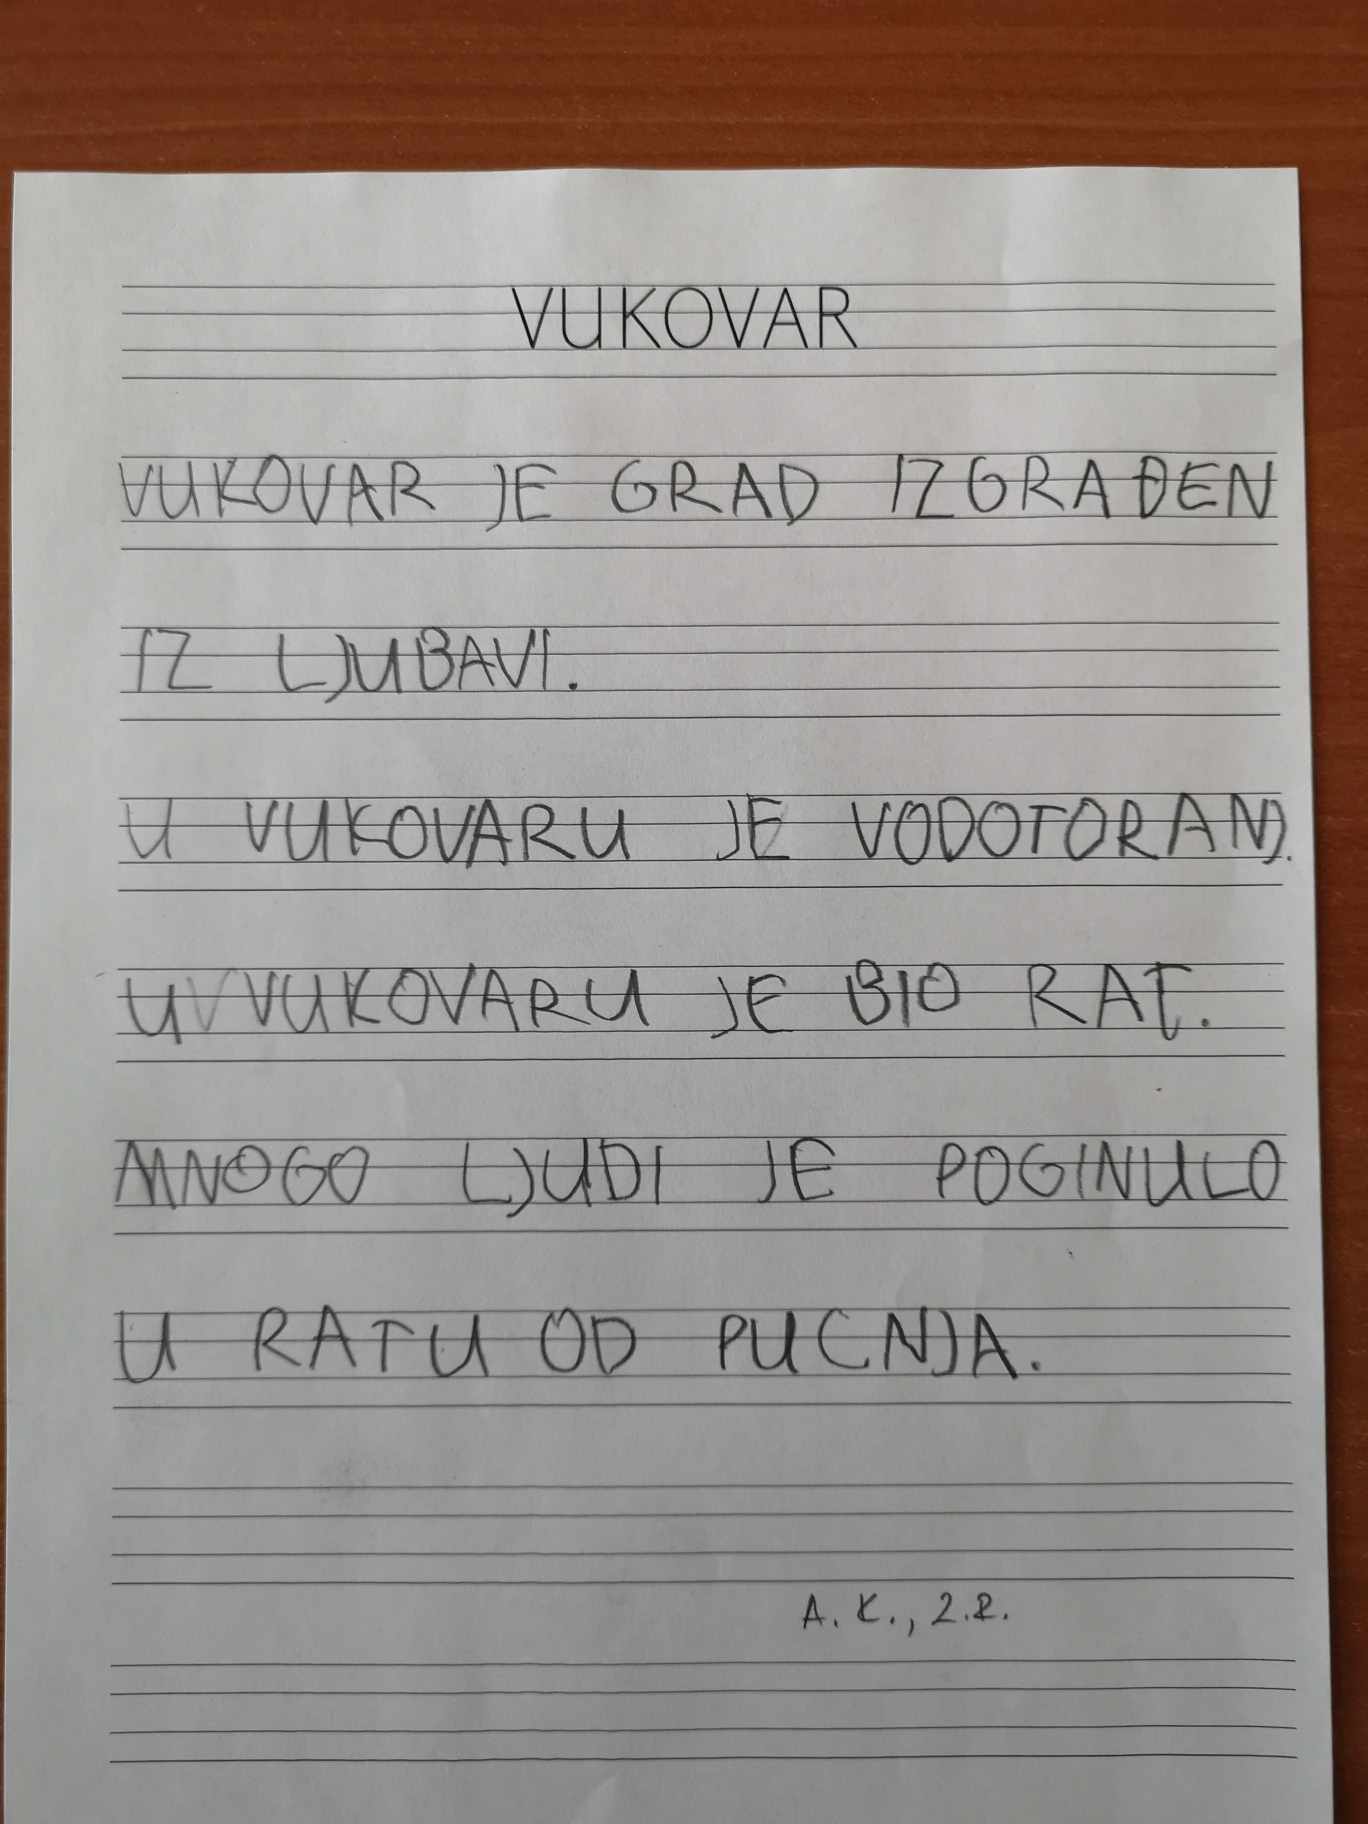 VUKOVAR
VUKOVAR JE GRAD IZGRAĐEN
IZ LJUBAVI.
U VUKOVARU JE VODOTORANJ.
U VUKOVARU JE BIO RAT.
MNOGO LJUDI JE POGINULO
U RATU OD PUCNJA.
A. K., 2.R.